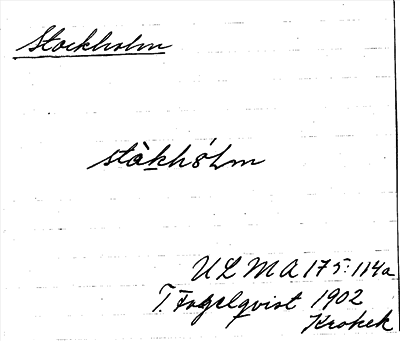 Stockholm
stàkhólm
ULMA 175:114a
T. Fogelqvist 1902
Krokek